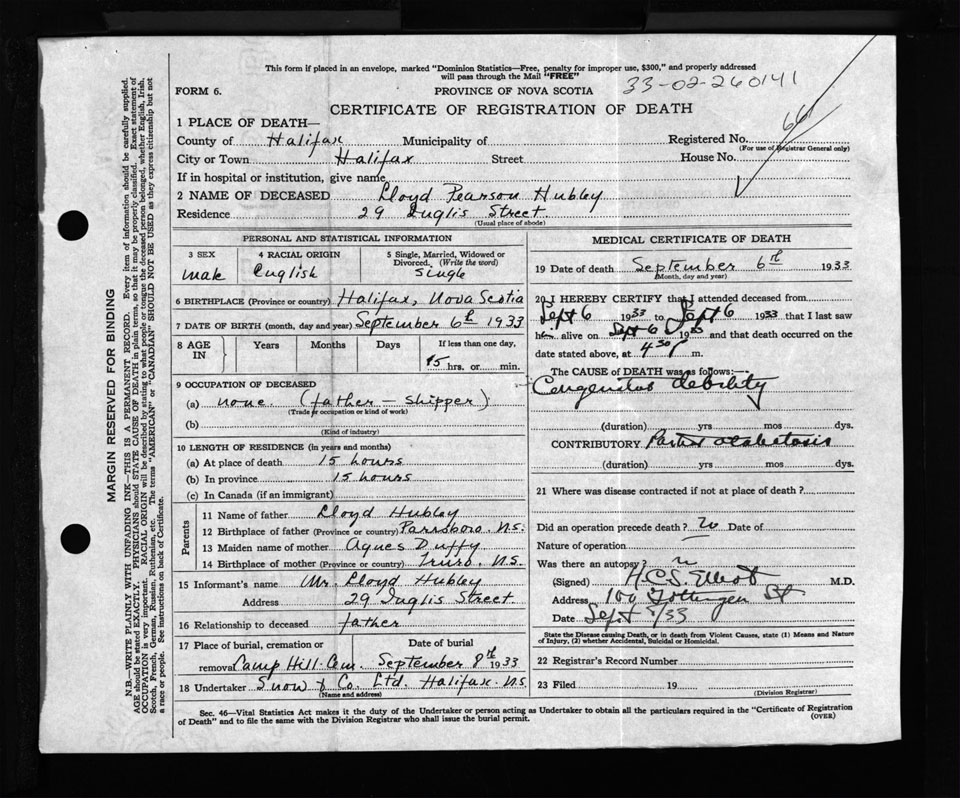 This form if placed in an envelope, marked "Dominion Statistics—Free, penalty for improper use, $300," and properly addressed
will pass through the Mail "FREE"
33-02-260141
FORM 6.
PROVINCE OF NOVA SCOTIA
CERTIFICATE OF REGISTRATION OF DEATH
1 PLACE OF DEATH—
County of Halifax Municipality of Registered No. 66
(For use of Registrar General only)
City or Town Halifax Street House No.
If in hospital or institution, give name
2 NAME OF DECEASED Lloyd Pearson Hubley
Residence 29 Inglis Street
(Usual place of abode)
PERSONAL AND STATISTICAL INFORMATION
3 SEX 4 RACIAL ORIGIN 5 Single, Married, Widowed or
Divorced. (Write the word)
male English single
6 BIRTHPLACE (Province or country) Halifax, Nova Scotia
7 DATE OF BIRTH (month, day and year) September 6th 1933
8 AGE IN Years Months Days If less than one day,
15 hrs. or min.
9 OCCUPATION OF DECEASED
(a) none (father - shipper)
(Trade or occupation or kind of work)
(b)
(Kind of industry)
10 LENGTH OF RESIDENCE (in years and months)
(a) At place of death 15 hours
(b) In province 15 hours
(c) In Canada (if an immigrant)
Parents
11 Name of father Lloyd Hubley
12 Birthplace of father (Province or country) Parrsboro. N.S.
13 Maiden name of mother Agnes Duffy
14 Birthplace of mother (Province or country) Truro. N.S.
15 Informant's name Mr. Lloyd Hubley
Address 29 Inglis Street.
16 Relationship to deceased father
17 Place of burial, cremation or Date of burial
removal Camp Hill Cem. September 8th 1933
18 Undertaker Snow & Co. Ltd. Halifax. N.S.
(Name and address)
MEDICAL CERTIFICATE OF DEATH
19 Date of death September 6th 1933
(Month, day and year)
20 I HEREBY CERTIFY that I attended deceased from
Sept 6 1933 to Sept 6 1933 that I last saw
h alive on Sept 6 1933 and that death occurred on the
date stated above, at 4 30 P m.
The CAUSE of DEATH was as follows:—
Congenital debility
(duration) yrs mos dys.
CONTRIBUTORY Partial atalectasis
(duration) yrs mos dys.
21 Where was disease contracted if not at place of death?
Did an operation precede death? no Date of
Nature of operation
Was there an autopsy? n
(Signed) H.C.S. Elliot M.D.
Address 100 Gottingen St
Date Sept /33
State the Disease causing Death, or in death from Violent Causes, state (1) Means and Nature
of Injury, (2) whether Accidental, Suicidal or Homicidal.
22 Registrar's Record Number
23 Filed 19
(Division Registrar)
Sec. 46—Vital Statistics Act makes it the duty of the Undertaker or person acting as Undertaker to obtain all the particulars required in the "Certificate of Registration
of Death" and to file the same with the Division Registrar who shall issue the burial permit.
(OVER)
MARGIN RESERVED FOR BINDING
N.B.—WRITE PLAINLY WITH UNFADING INK—THIS IS A PERMANENT RECORD. Every item of information should be carefully supplied.
AGE should be stated EXACTLY. PHYSICIANS should STATE CAUSE OF DEATH in plain terms, so that it may be properly classified. Exact statement of
OCCUPATION is very important. RACIAL ORIGIN will be described by stating to what people or tongue the deceased person belonged, whether English, Irish,
Scotch, French, German, Russian, Ruthenian, etc. The terms "AMERICAN" or "CANADIAN" SHOULD NOT BE USED as they express citizenship but not
a race or people. See instructions on back of Certificate.